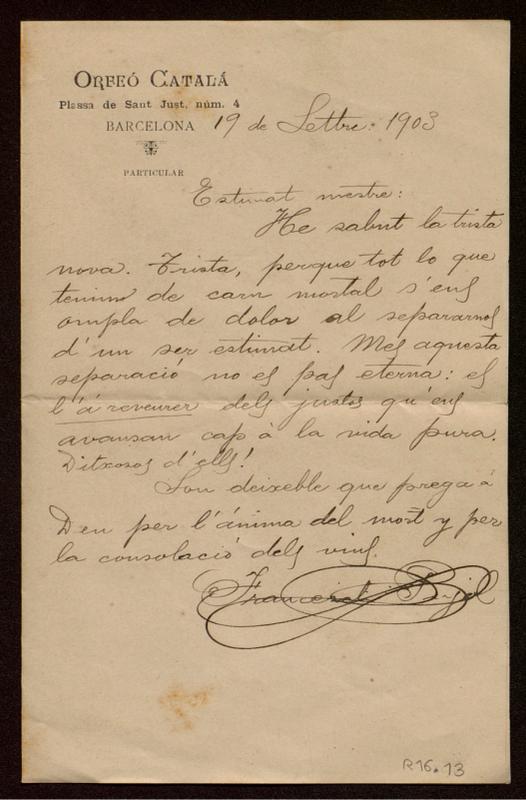 ORFEÓ CATALÁ
Plassa de Sant Just, núm. 4
BARCELONA
19 de Setbre. 1903
PARTICULAR
Estimat mestre:
He sabut la trista
nova. Trista, perque tot lo que
tenim de carn mortal s'ens
ompla de dolor al separarnos
d'un ser estimat. Mes aquesta
separació no es pas eterna: es
l'á reveurer dels justos qu'ens
avansan cap á la vida pura.
Ditxosos d'ells!
Son deixeble que prega á
Deu per l'ánima del mort y per
la consolació dels vius.
Francisco Pujol
R16.13